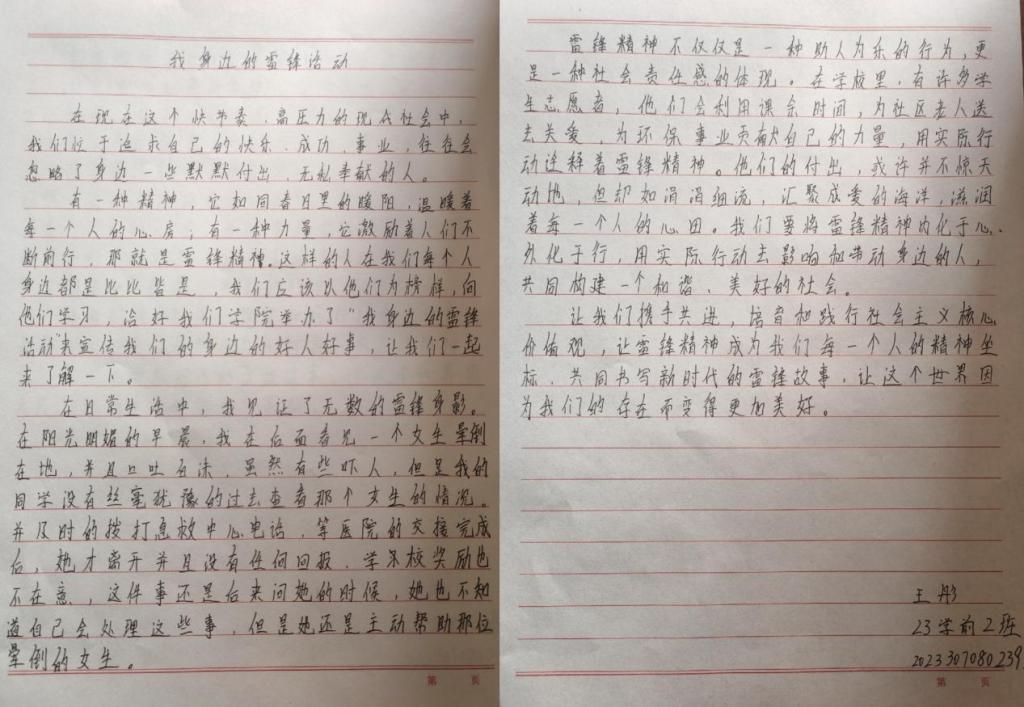 我身边的雷锋活动
在现在这个快节奏、高压力的现代社会中，
我们忙于追求自己的快乐、成功、事业，往往会
忽略了身边一些默默付出、无私奉献的人。
有一种精神，它如同春日里的暖阳，温暖着
每一个人的心房；有一种力量，它激励着人们不
断前行，那就是雷锋精神。这样的人在我们每个人
身边都是比比皆是，我们应该以他们为榜样，向
他们学习，洽好我们学院举办了“我身边的雷锋
活动”来宣传我们的身边的好人好事，让我们一起
来了解一下。
在日常生活中，我见证了无数的雷锋身影。
在阳光明媚的早晨，我在后面看见一个女生晕倒
在地，并且口吐白沫，虽然有些吓人，但是我的
同学没有丝毫犹豫的过去查看那个女生的情况。
并及时的拨打急救中心电话，等医院的交接完成
后，她才离开并且没有任何回报，学校奖励也
不在意，这件事还是后来问她的时候，她也不知
道自己会处理这些事，但是她还是主动帮助那位
晕倒的女生。
第 页
雷锋精神不仅仅是一种助人为乐的行为，更
是一种社会责任感的体现。在学校里，有许多学
生志愿者，他们会利用课余时间，为社区老人送
去关爱，为环保事业贡献自己的力量，用实际行
动诠释着雷锋精神。他们的付出，或许并不惊天
动地，但却如涓涓细流，汇聚成爱的海洋，滋润
着每一个人的心田。我们要将雷锋精神内化于心、
外化于行，用实际行动去影响和带动身边的人，
共同构建一个和谐、美好的社会。
让我们携手共进，培育和践行社会主义核心
价值观，让雷锋精神成为我们每一个人的精神坐
标，共同书写新时代的雷锋故事，让这个世界因
为我们的存在而变得更加美好。
王彤
23学前2班
2023307080239
第 页